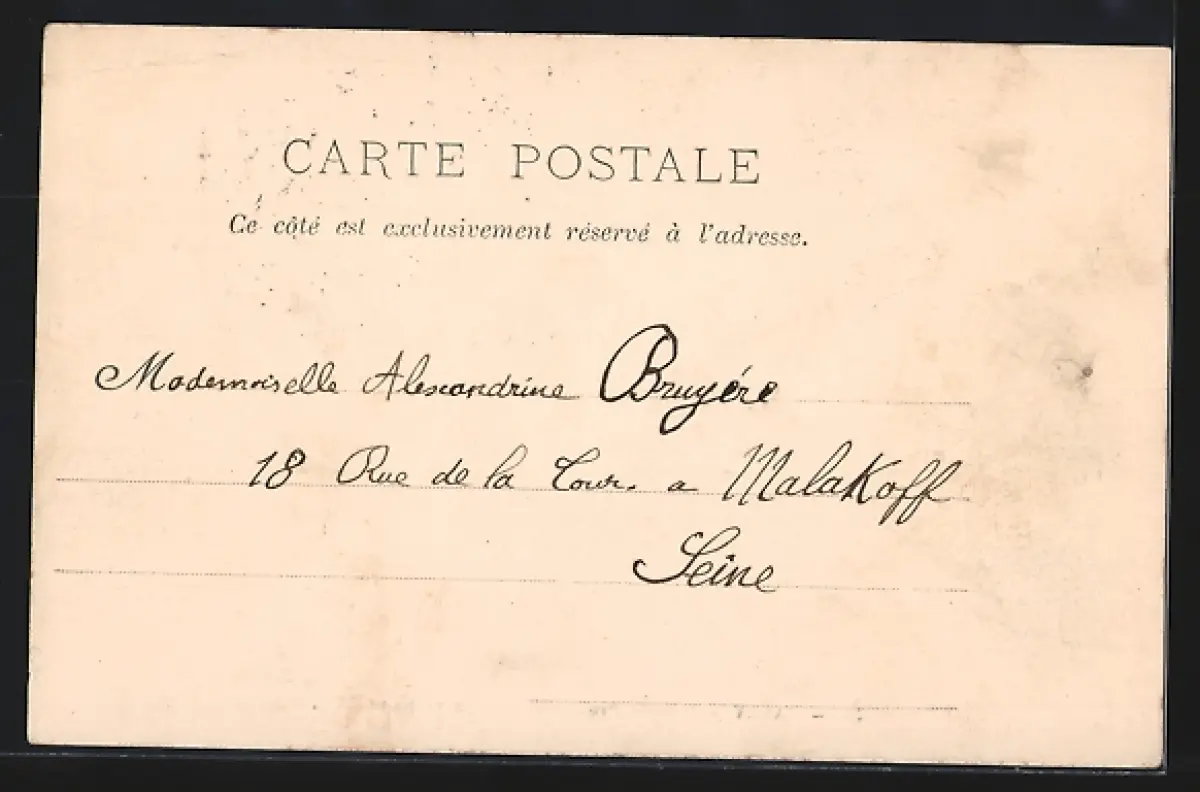 CARTE POSTALE
Ce côté est exclusivement réservé à l'adresse.
Mademoiselle Alexandrine Bruyére
18 Rue de la Tour. a Malakoff
Seine